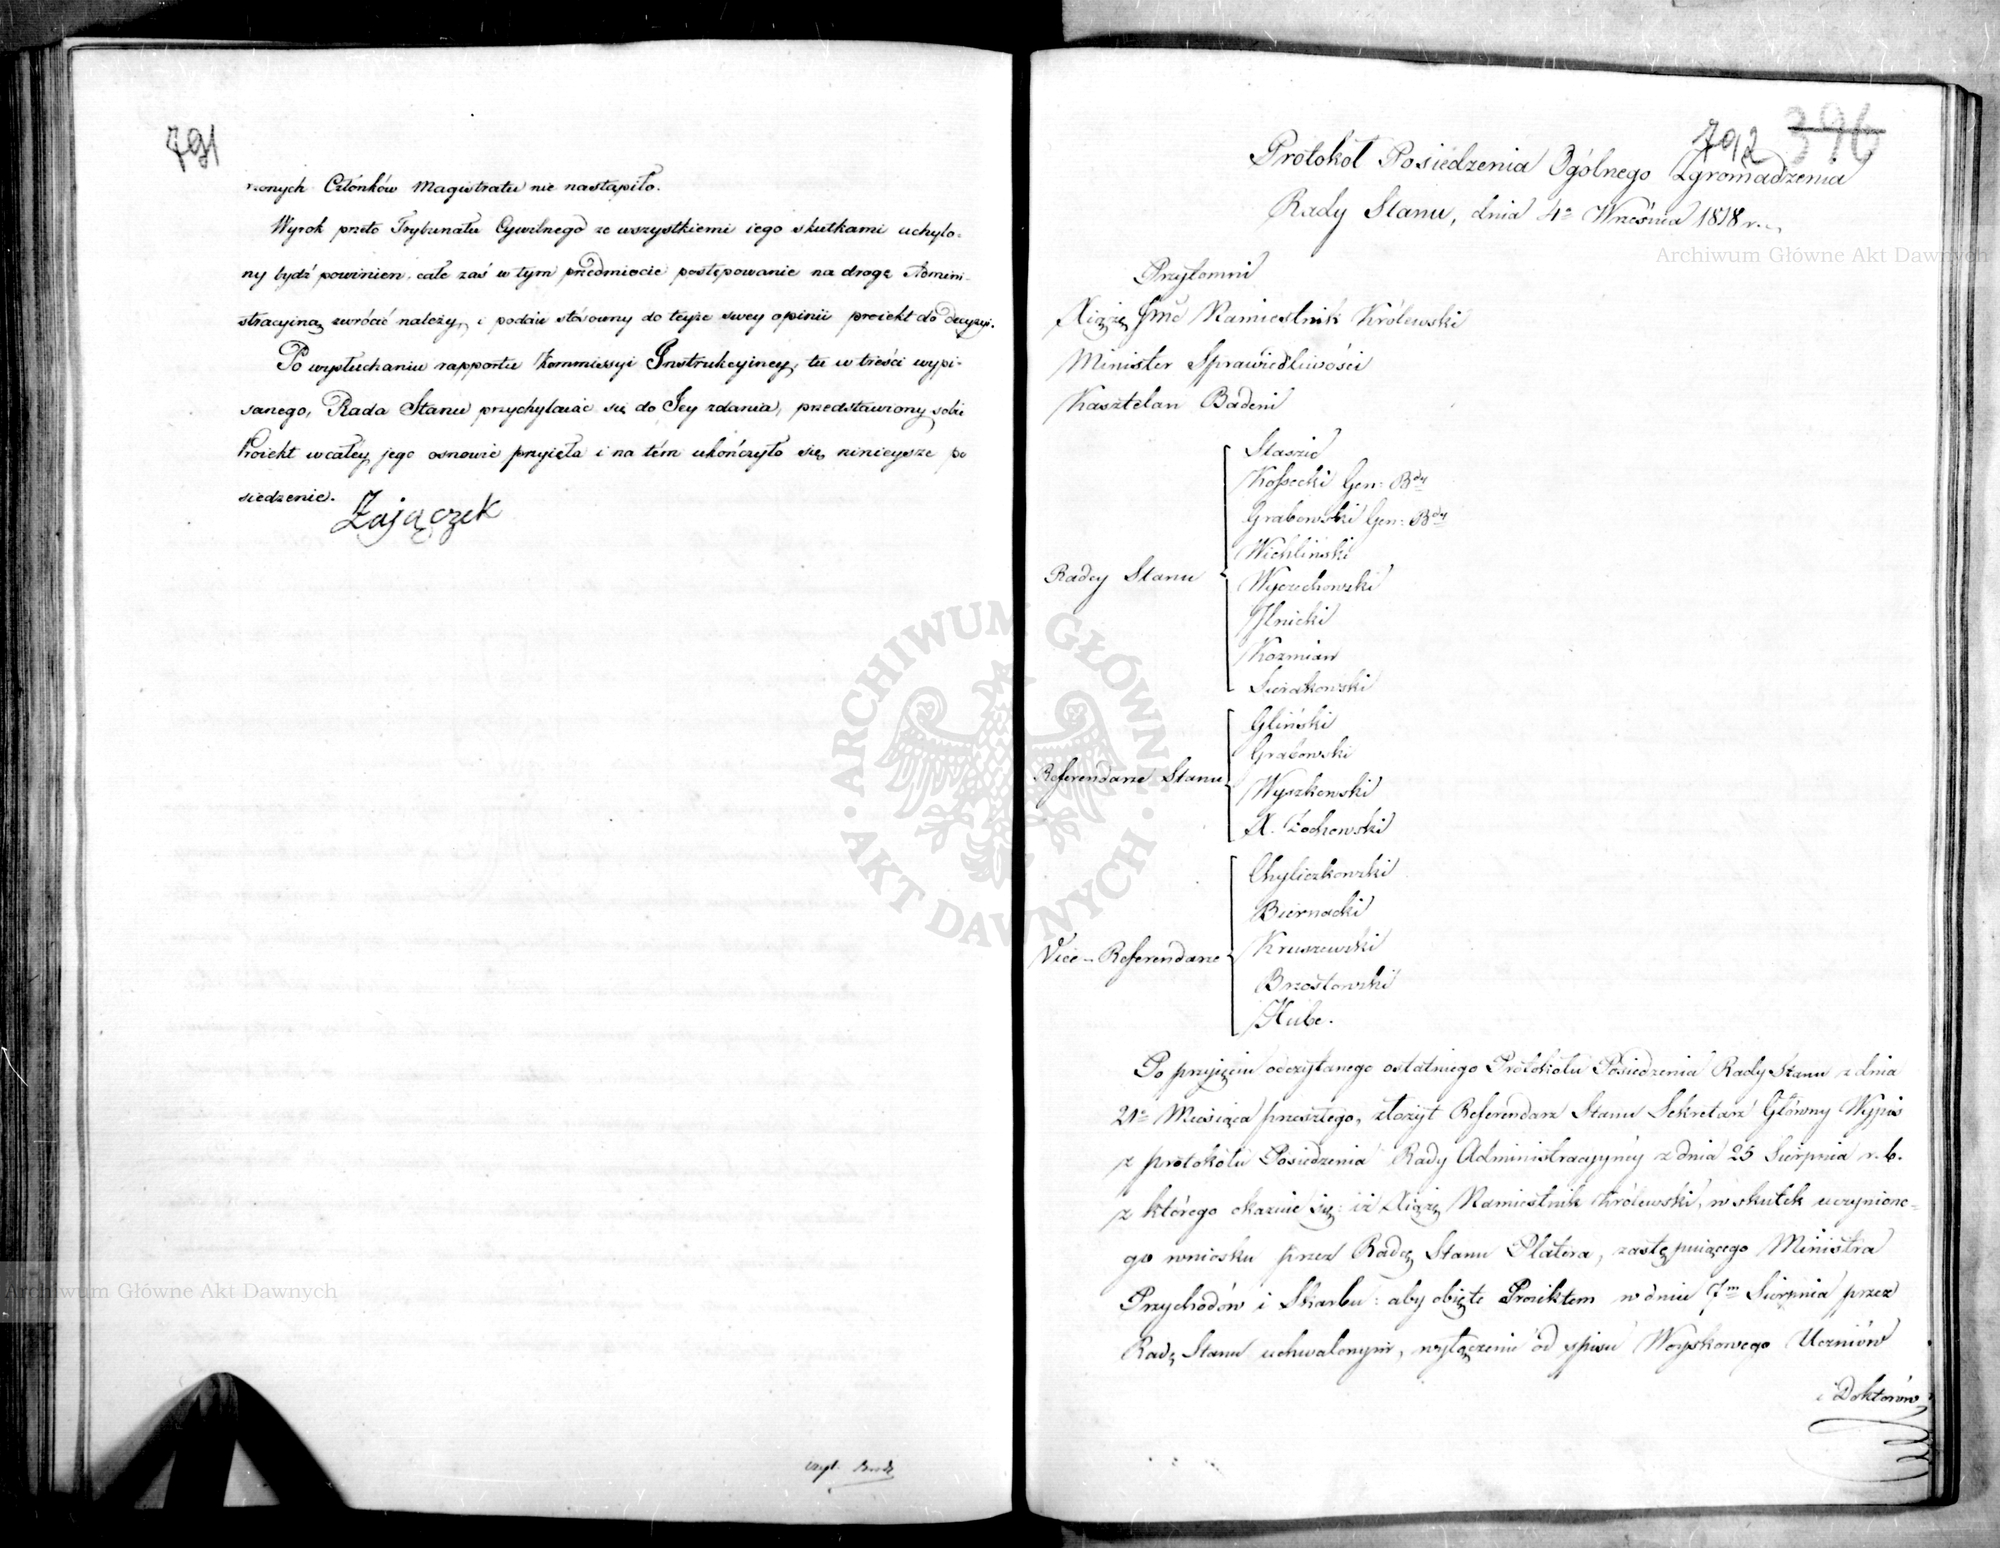 791
rzonych Członków Magistratu nie nastąpiło.
Wyrok przeto Trybunału Cywilnego ze wszystkiemi iego skutkami uchylo-
ny bydź powinien, całe zaś w tym przedmiocie postępowanie na drogę Admini-
stracyiną zwrócić należy, i podaie stosowny do teyże swey opinii proiekt do decyzyi.
Po wysłuchaniu rapportu Kommissyi Instrukcyiney, tu w treści wypi-
sanego, Rada Stanu przychylaiąc się do Jey zdania, przedstawiony sobie
Proiekt w całéy jego osnowie przyięła i na tém ukończyło się ninieysze po
siedzenie.
Zajączek
792 396
Protokół Posiedzenia Ogólnego Zgromadzenia
Rady Stanu, dnia 4o Września 1818 r.
Przytomni
Xiążę Jmć Namiestnik Królewski
Minister Sprawiedliwości
Kasztelan Badeni
Radcy Stanu
Staszic
Kossecki Gen: Bdy
Grabowski Gen: Bdy
Wichliński
Wyczechowski
Ilnicki
Kozmian
Sierakowski
Referendarze Stanu
Gliński
Grabowski
Wyszkowski
X. Żochowski
Vice-Referendarze
Chyliczkowski
Biernacki
Kruszewski
Brzostowski
Hube.
Po przyjęciu odczytanego ostatniego Protokołu Posiedzenia Rady Stanu z dnia
21o Miesiąca przeszłego, złożył Referendarz Stanu Sekretarz Główny Wypis
z protokołu Posiedzenia Rady Administracyjnéy z dnia 25 Sierpnia r. b.
z którego okazuie się: iż Xiążę Namiestnik Królewski, w skutek uczynione-
go wniosku przez Radcę Stanu Platera, zastępuiącego Ministra
Przychodów i Skarbu: aby obięte Proiektem w dniu 7m Sierpnia przez
Radę Stanu uchwalonym, wyłączenie od spisu Woyskowego Uczniów
i Doktorów
Archiwum Główne Akt Dawnych
Archiwum Główne Akt Dawnych
ARCHIWUM GŁÓWNE · AKT DAWNYCH ·